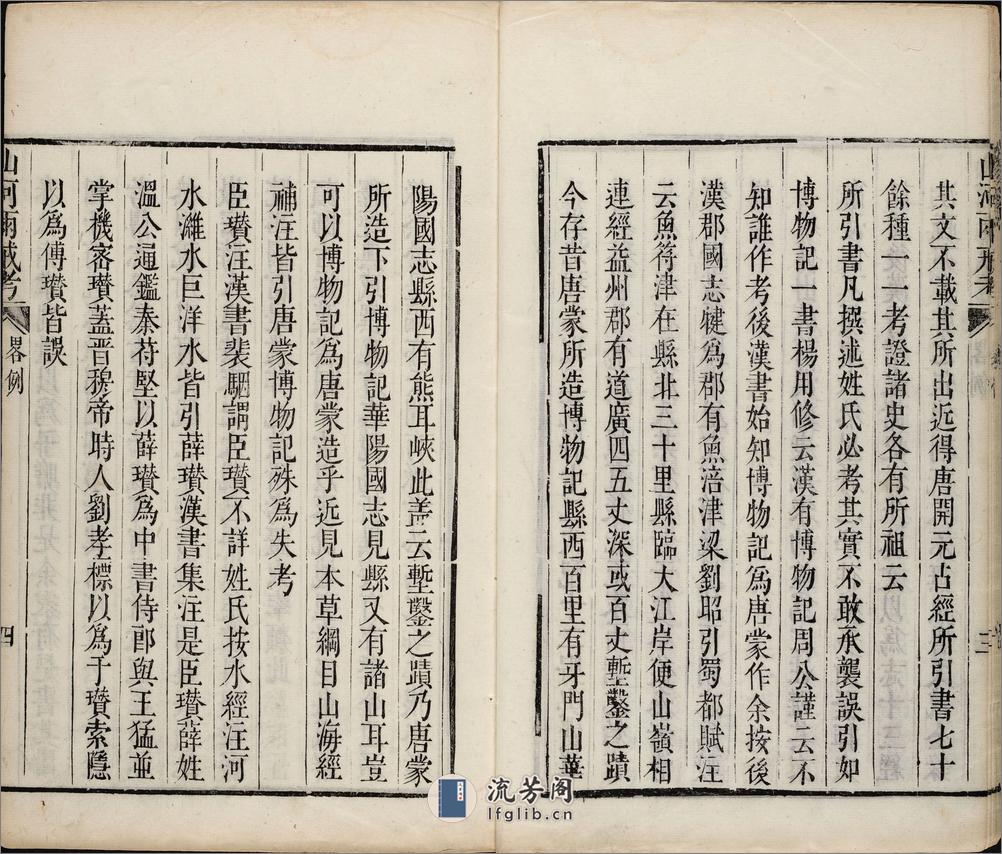 其文不載其所出近得唐開元占經所引書七十
餘種一一考證諸史各有所祖云
所引書凡撰述姓氏必考其實不敢承襲誤引如
博物記一書楊用修云漢有博物記周公謹云不
知誰作考後漢書始知博物記爲唐蒙作余按後
漢郡國志犍爲郡有魚涪津梁劉昭引蜀都賦注
云魚符津在縣北三十里縣臨大江岸便山嶺相
連經益州郡有道廣四五丈深或百丈塹鑿之蹟
今存昔唐蒙所造博物記縣西百里有牙門山華
陽國志縣西有熊耳峽此葢云塹鑿之蹟乃唐蒙
所造下引博物記華陽國志見縣又有諸山耳豈
可以博物記爲唐蒙造乎近見本草綱目山海經
補注皆引唐蒙博物記殊爲失考
臣瓚注漢書裴駰謂臣瓚不詳姓氏按水經注河
水濰水巨洋水皆引薛瓚漢書集注是臣瓚薛姓
溫公通鑑秦苻堅以薛瓚爲中書侍郎與王猛並
掌機密瓚蓋晉穆帝時人劉孝標以爲于瓚索隱
以爲傅瓚皆誤
山河兩戒考
畧例
四
流芳阁
lfglib.cn